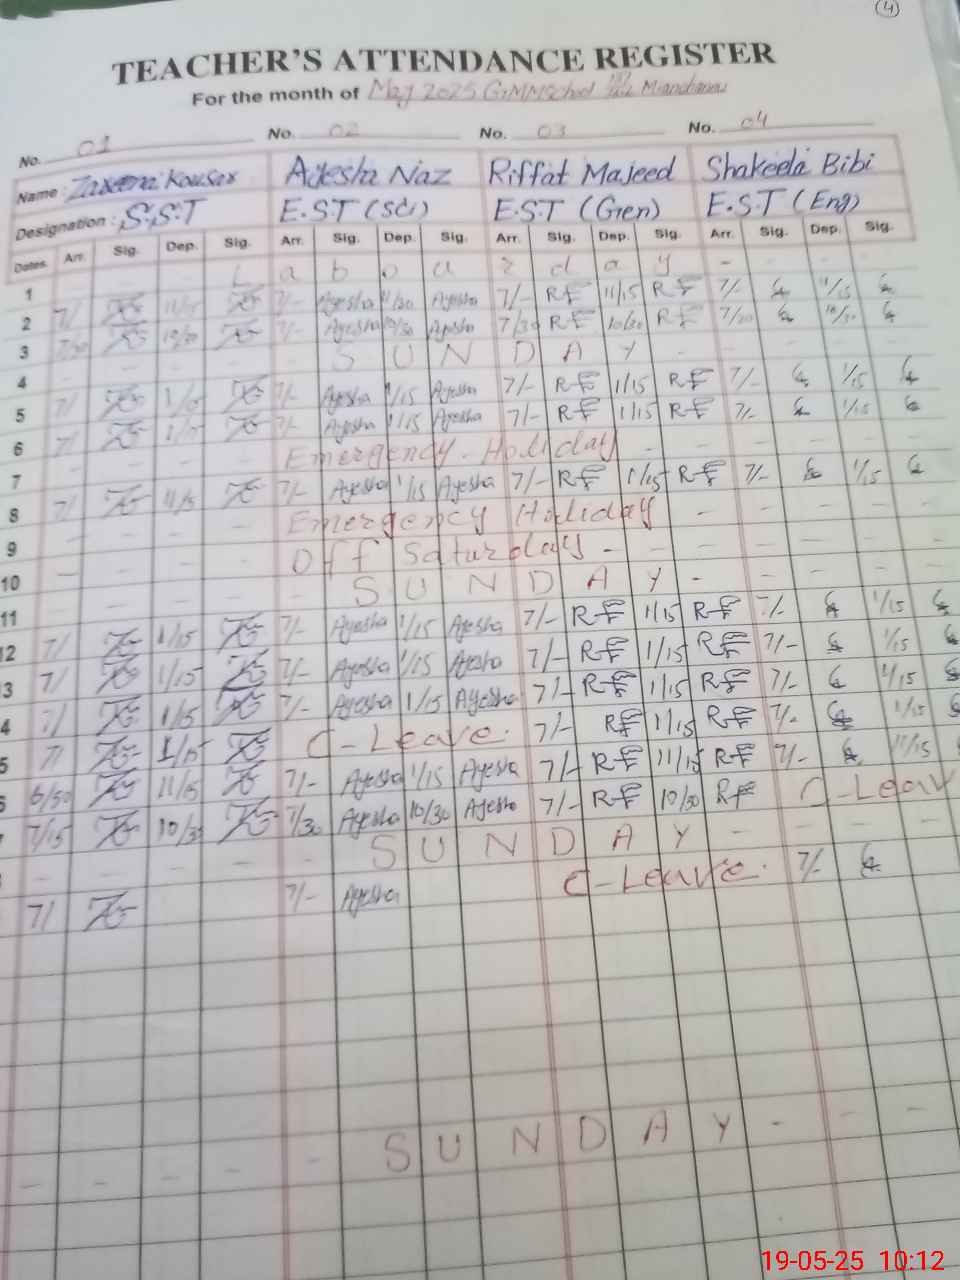 4
TEACHER'S ATTENDANCE REGISTER
For the month of May 2025 G.MMSchool Mianchannu
No. 01 No. 02 No. 03 No. 04
Name: Kousar Ayesha Naz Riffat Majeed Shakeela Bibi
Designation: S.S.T E.S.T (Sci) E.S.T (Gen) E.S.T (Eng)
Dates Arr. Sig. Dep. Sig. Arr. Sig. Dep. Sig. Arr. Sig. Dep. Sig. Arr. Sig. Dep. Sig.
1 Labour day -
2 7/ 7/- Ayesha 11/30 Ayesha 7/- RF 11/15 RF 7/- 11/15
3 7/30 10/30 7/- Ayesha 10/30 Ayesha 7/30 RF 10/30 RF 7/30 10/30
4 - - - - SUNDAY - - - -
5 7/ 1/15 7/- Ayesha 1/15 Ayesha 7/- RF 1/15 RF 7/- 1/15
6 7/ 1/15 7/- Ayesha 1/15 Ayesha 7/- RF 1/15 RF 7/- 1/15
7 - - - - Emergency. Holiday - - - - -
8 7/ 11/15 7/- Ayesha 1/15 Ayesha 7/- RF 1/15 RF 7/- 1/15
9 - - - - Emergency Holiday - - - -
10 - - - - Off Saturday - - - - -
11 - - - - SUNDAY - - - -
12 7/ 1/15 7/- Ayesha 1/15 Ayesha 7/- RF 1/15 RF 7/- 1/15
13 7/ 1/15 7/- Ayesha 1/15 Ayesha 7/- RF 1/15 RF 7/- 1/15
4 7/ 1/15 7/- Ayesha 1/15 Ayesha 7/- RF 1/15 RF 7/- 1/15
5 7/ 1/15 C-Leave. 7/- RF 1/15 RF 7/- 1/15
6 6/50 11/15 7/- Ayesha 1/15 Ayesha 7/- RF 11/15 RF 7/- 11/15
7 7/15 10/30 7/30 Ayesha 10/30 Ayesha 7/- RF 10/30 RF C-Leav
- - - - - SUNDAY - - - -
7/ 7/- Ayesha C-Leave. 7/-
- - - - - SUNDAY - - - -
19-05-25 10:12